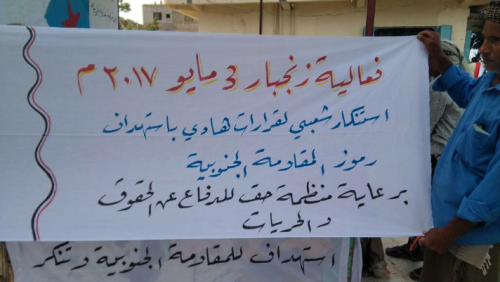 فعالية زنجبار 3 مايو ٢٠١٧ م
استنكار شعبي لقرارات هادي باستهداف
رموز المقاومة الجنوبية
برعاية منظمة حق للدفاع عن الحقوق
والحريات
استهداف للمقاومة الجنوبية وتنكر